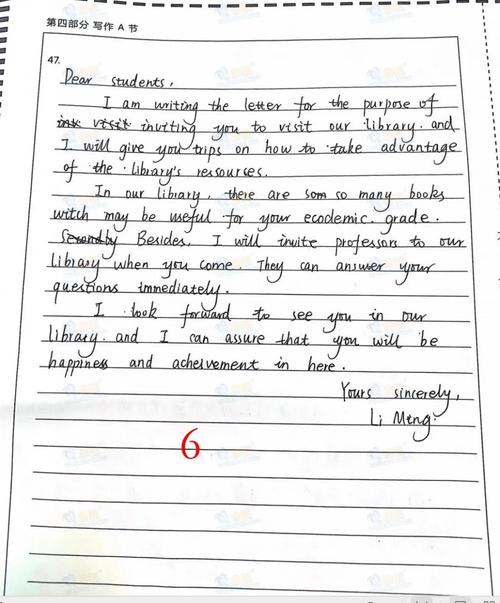 第四部分 写作 A 节
47.
Dear students,
I am writing the letter for the purpose of
visit inviting you to visit our library. and
I will give you trips on how to take advantage
of the library's ressources.
In our library, there are som so many books
witch may be useful for your ecodemic grade.
Secondly Besides, I will invite professors to our
library when you come. They can answer your
questions immediately.
I look forward to see you in our
library. and I can assure that you will be
happiness and acheivement in here.
Yours sincerely,
Li Meng.
6